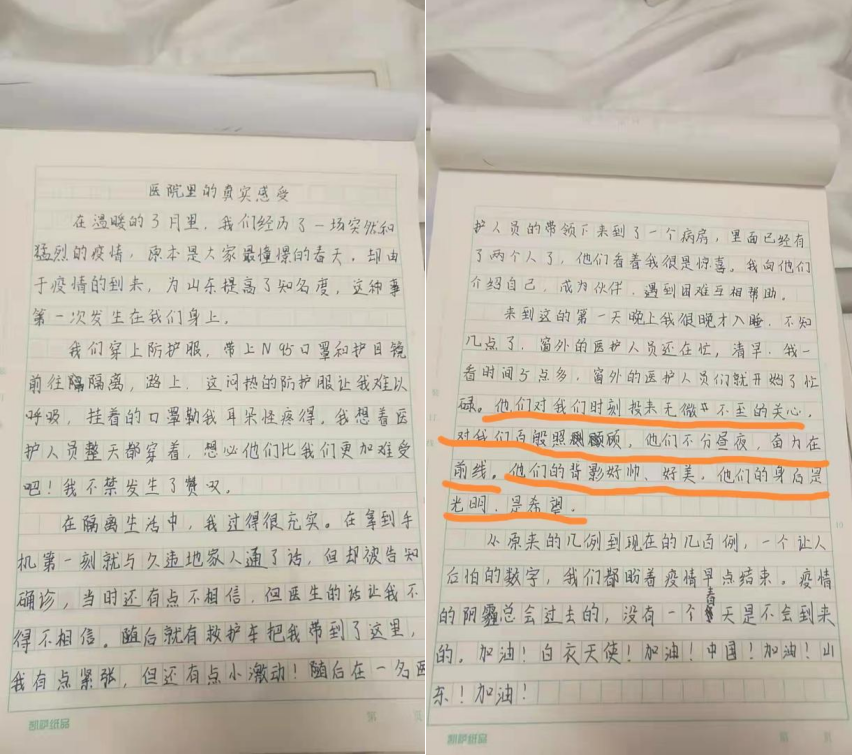 医院里的真实感受
在温暖的3月里，我们经历了一场突然和
猛烈的疫情，原本是大家最憧憬的春天，却由
于疫情的到来，为山东提高了知名度，这种事
第一次发生在我们身上。
我们穿上防护服，带上N95口罩和护目镜
前往隔离，路上，这闷热的防护服让我难以
呼吸，挂着的口罩勒我耳朵怪疼得。我想着医
护人员整天都穿着，想必他们比我们更加难受
吧！我不禁发生了赞叹。
在隔离生活中，我过得很充实。在拿到手
机第一刻就与久违地家人通了话，但却被告知
确诊，当时还有点不相信，但医生的话让我不
得不相信。随后就有救护车把我带到了这里，
我有点紧张，但还有点小激动！随后在一名医
凯萨纸品
第 页
护人员的带领下来到了一个病房，里面已经有
了两个人了，他们看着我很是惊喜。我向他们
介绍自己，成为伙伴，遇到困难互相帮助。
来到这的第一天晚上我很晚才入睡，不知
几点了，窗外的医护人员还在忙，清早，我一
看时间5点多，窗外的医护人员们就开始了忙
碌。他们对我们时刻投来无微不至的关心，
对我们百般照顾，他们不分昼夜，奋力在
前线。他们的背影好帅、好美，他们的身后是
光明，是希望。
从原来的几例到现在的几百例，一个让人
后怕的数字，我们都盼着疫情早点结束。疫情
的阴霾总会过去的，没有一个春天是不会到来
的。加油！白衣天使！加油！中国！加油！山
东！加油！
凯萨纸品
第 页